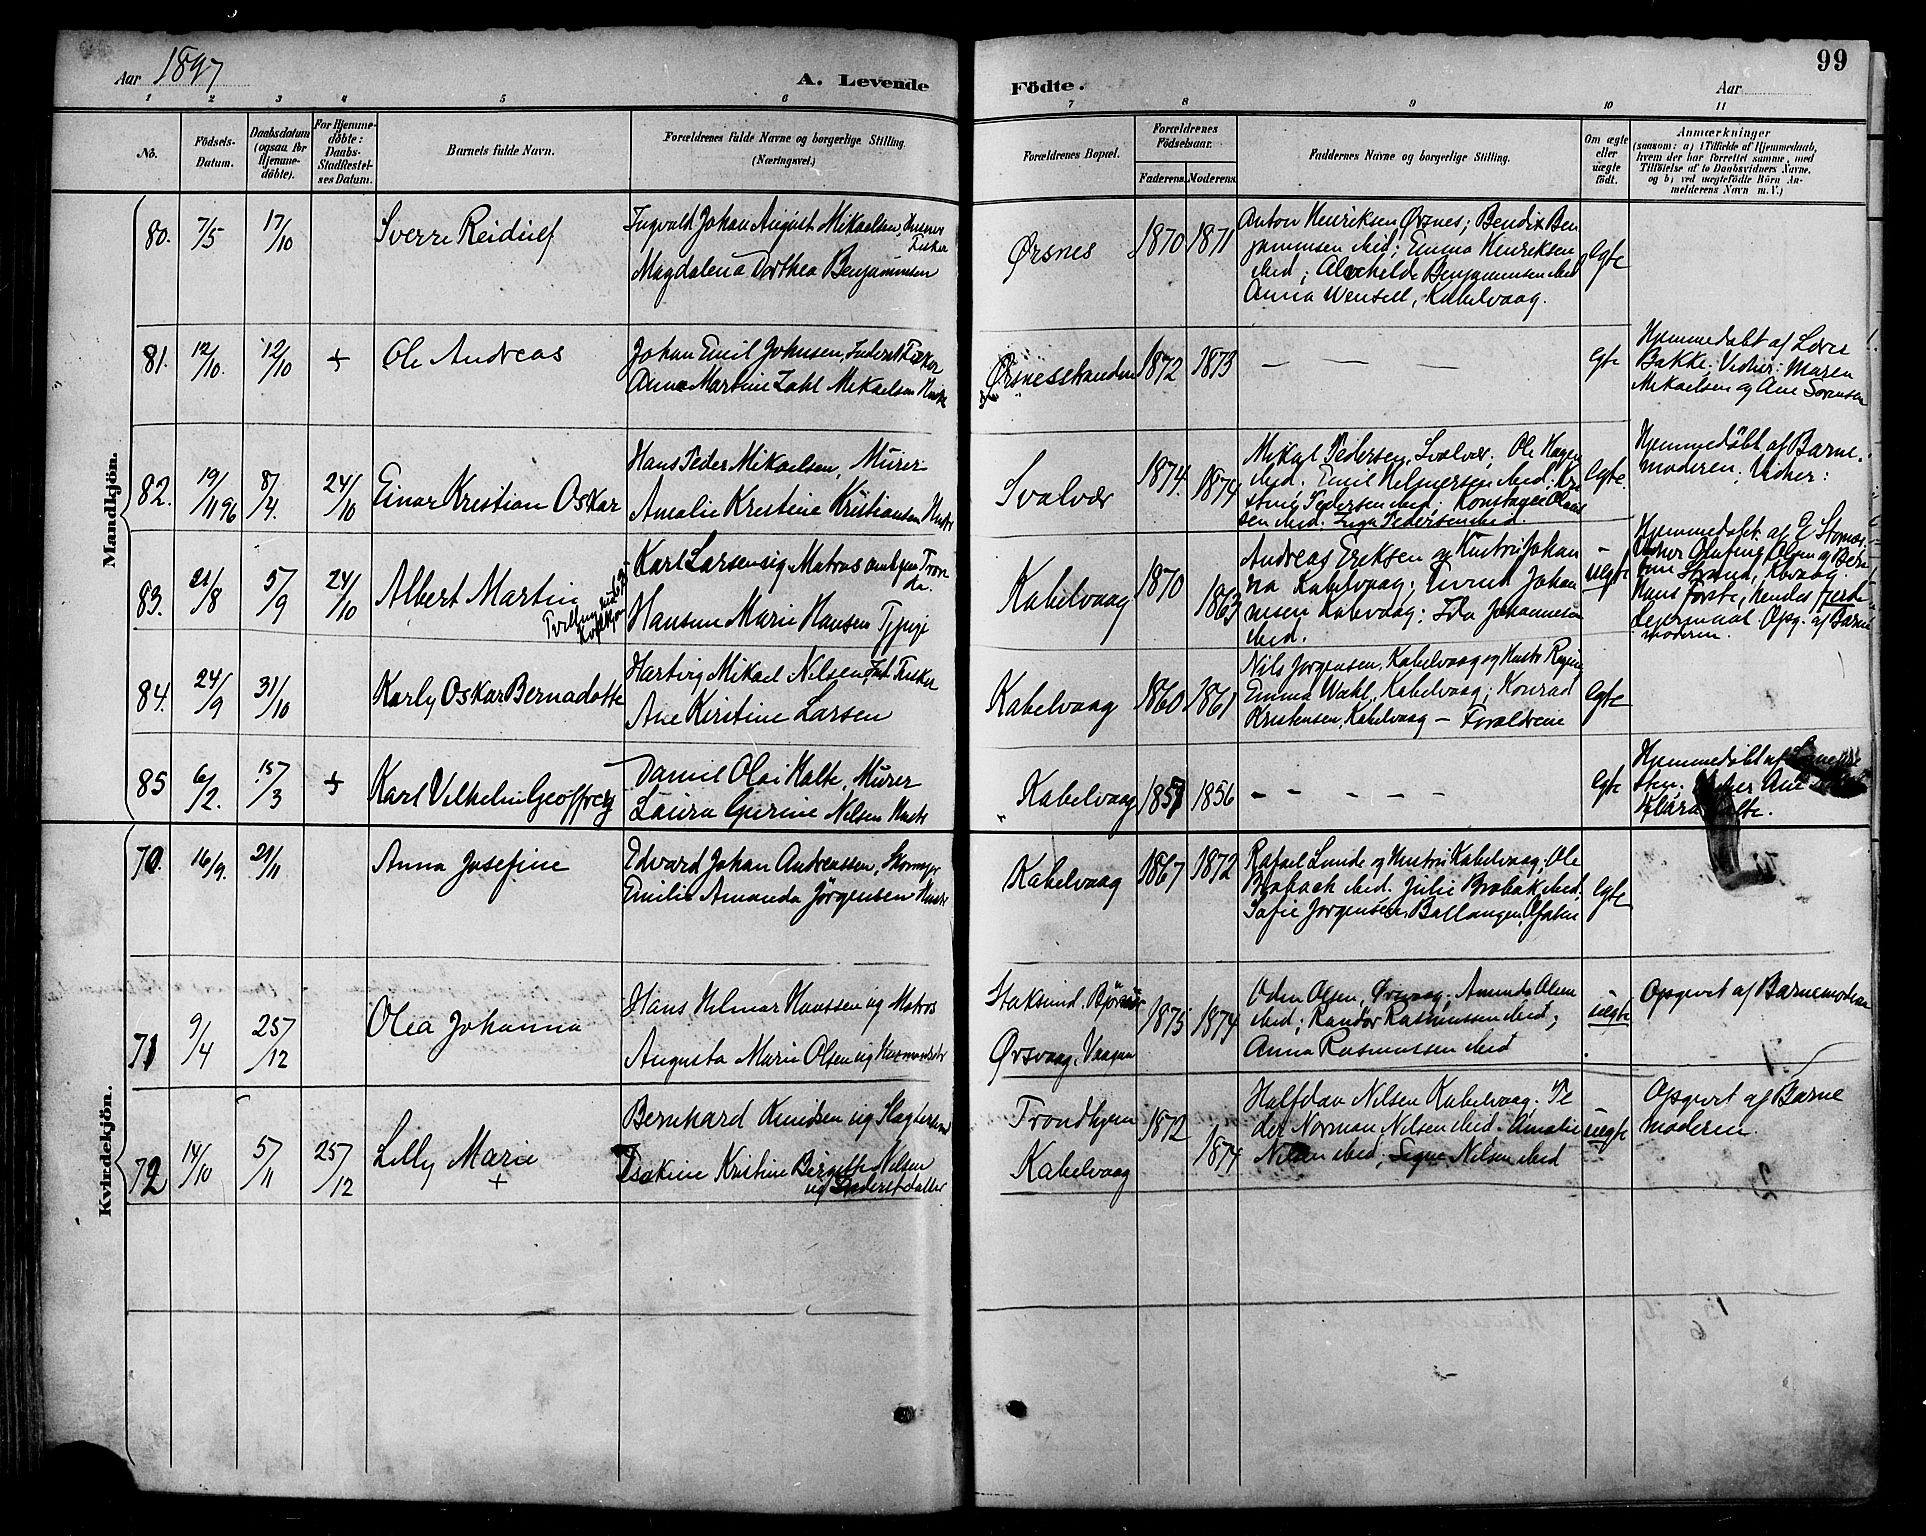 Aar 1897
A. Levende
Födte.
Aar
99
1 2 3 4 5 6 7 8 9 10 11
No.
Födsels-
Datum.
Daabsdatum
(ogsaa for
Hjemme-
döbte).
For Hjemme-
döbte:
Daabs-
Stadfæstel-
ses Datum.
Barnets fulde Navn.
Forældrenes fulde Navne og borgerlige Stilling.
(Næringsvei.)
Forældrenes Bopæl.
Forældrenes
Födselsaar.
Faderens. Moderens.
Faddernes Navne og borgerlige Stilling.
Om ægte
eller
uægte
födt.
Anmærkninger
(saasom: a) i Tilfælde af Hjemmedaab,
hvem der har forrettet samme, med
Tilföielse af to Daabsvidners Navne,
og b) ved uægtefödte Börn An-
melderens Navn m. V.)
Mandkjön.
80. 7/5 17/10 Sverre Reidulf
Ingvald Johan August Mikaelsen, Fisker
Magdalena Dorthea Benjaminsen
Ørsnes 1870 1871
Anton Henriksen Ørsnes; Bendix Ben
jaminsen ibid; Emma Henriksen
ibid; Alvhilde Benjaminsen ibid
Anna Wensell, Kabelvaag.
Egte
81. 12/10. 12/10 + Ole Andreas
Johan Emil Johnsen, Fisker
Anna Martine Zahl Mikaelsen Hustr
Ørsnesstranden 1872 1873
— — —
Egte
Hjemmedøbt af
Bakke; Vidner: Maren
Mikaelsen og Ane Sørensen
82. 19/11 96 8/4. 24/10 Einar Kristian Oskar
Hans Peder Mikaelsen, Murer
Amalie Kristine Kristiansen Hustr
Svolvær 1874. 1874
Mikal Pedersen, Svolvær; Ole Hagen
ibid. Emil Helmersen ibid; Kri
stine Pedersen ibid, Olaus
sen ibid. Inga Pedersen ibid.
Egte.
Hjemmedøbt af Barne-
moderen; Vidner:
83. 21/8 5/9 24/10 Albert Martin
Karl Larsen ug Matros Tron
Hansine Marie Hansen Tj.pige
Kabelvaag 1870 1863
Andreas Eriksen og Hustru Johan
na Kabelvaag; Eivind Johan
nesen Kabelvaag: Ida Johannesen
ibid.
uegte
Hjemmedøbt af E. Stornes.
Vidner Olufine Olsen og
Strand, Kbvaag.
Hans første, hendes fjerde
Leiermaal. Opg. af Barne
moderen.
84. 24/9 31/10 Karly Oskar Bernadotte
Hartvig Mikael Nilsen, Ind. Fisker
Ane Kirstine Larsen
Kabelvaag 1860 1861
Nils Jørgensen, Kabelvaag og Hustr
Emma Wahl, Kabelvaag; Konrad
Kristensen, Kabelvaag — Forældrene
Egte
85 6/2. 15/3 + Karl Vilhelm Geoffrey
Daniel Olai Kalte, Murer
Laura Gurine Nilsen Hustr
Kabelvaag 1857 1856
— — — — —
Egte
Hjemmedøbt af
Vidner Ane
Klara Kalte.
Kvindekjön.
70. 16/9. 21/11 Anna Josefine
Edvard Johan Andreassen,
Emilie Amanda Jørgensen Hustr
Kabelvaag 1867 1872
Rafael Lunde og Hustru Kabelvaag, Ole
Brobak ibid. Julie Brobak ibid,
Sofie Jørgensen, Ballangen, Ofoten
Egte
71 9/4 25/12 Olea Johanna
Hans Hilmar Hanssen ug Matros
Augusta Marie Olsen ug
Staksund. Bjørnør
Ørsvaag. Vaagan
1875 1874
Oden Olsen, Ørsvaag; Amanda Olsen
ibid; Randor Rasmussen ibid;
Anna Rasmussen ibid
uegte
Opgivet af Barnemoderen
72 14/10 5/11 25/12 Lilly Marie +
Bernhard Knudsen ug Slagtersvend
Isakine Kristine Birgithe Nilsen
ug Inderstdatter
Trondhjem
Kabelvaag
1872 1874
Halfdan Nilsen Kabelvaag. Pe
der Norman Nilsen ibid. Amalie
Nilsen ibid; Signe Nilsen ibid
uegte
Opgivet af Barne
moderen.